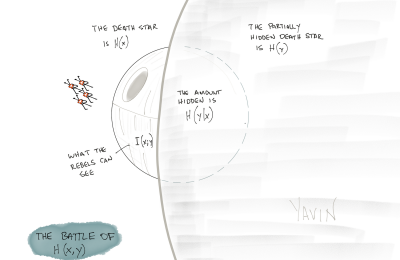 THE DEATH STAR
IS H(X)
THE PARTIALLY
HIDDEN DEATH STAR
IS H(Y)
THE AMOUNT
HIDDEN IS
H(Y|X)
I(X;Y)
WHAT THE
REBELS CAN
SEE
YAVIN
THE BATTLE OF
H(X,Y)